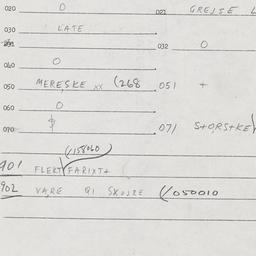 020 0 021 GREJSE L
030 LATE
031 032 0
040 0
050 MERESKE xx (268 051 +
060 0
070 $ 071 S+ORS+KE
(/158060
901 FLERT FARIXT+
902 VARE GI SKOJRE (/050010